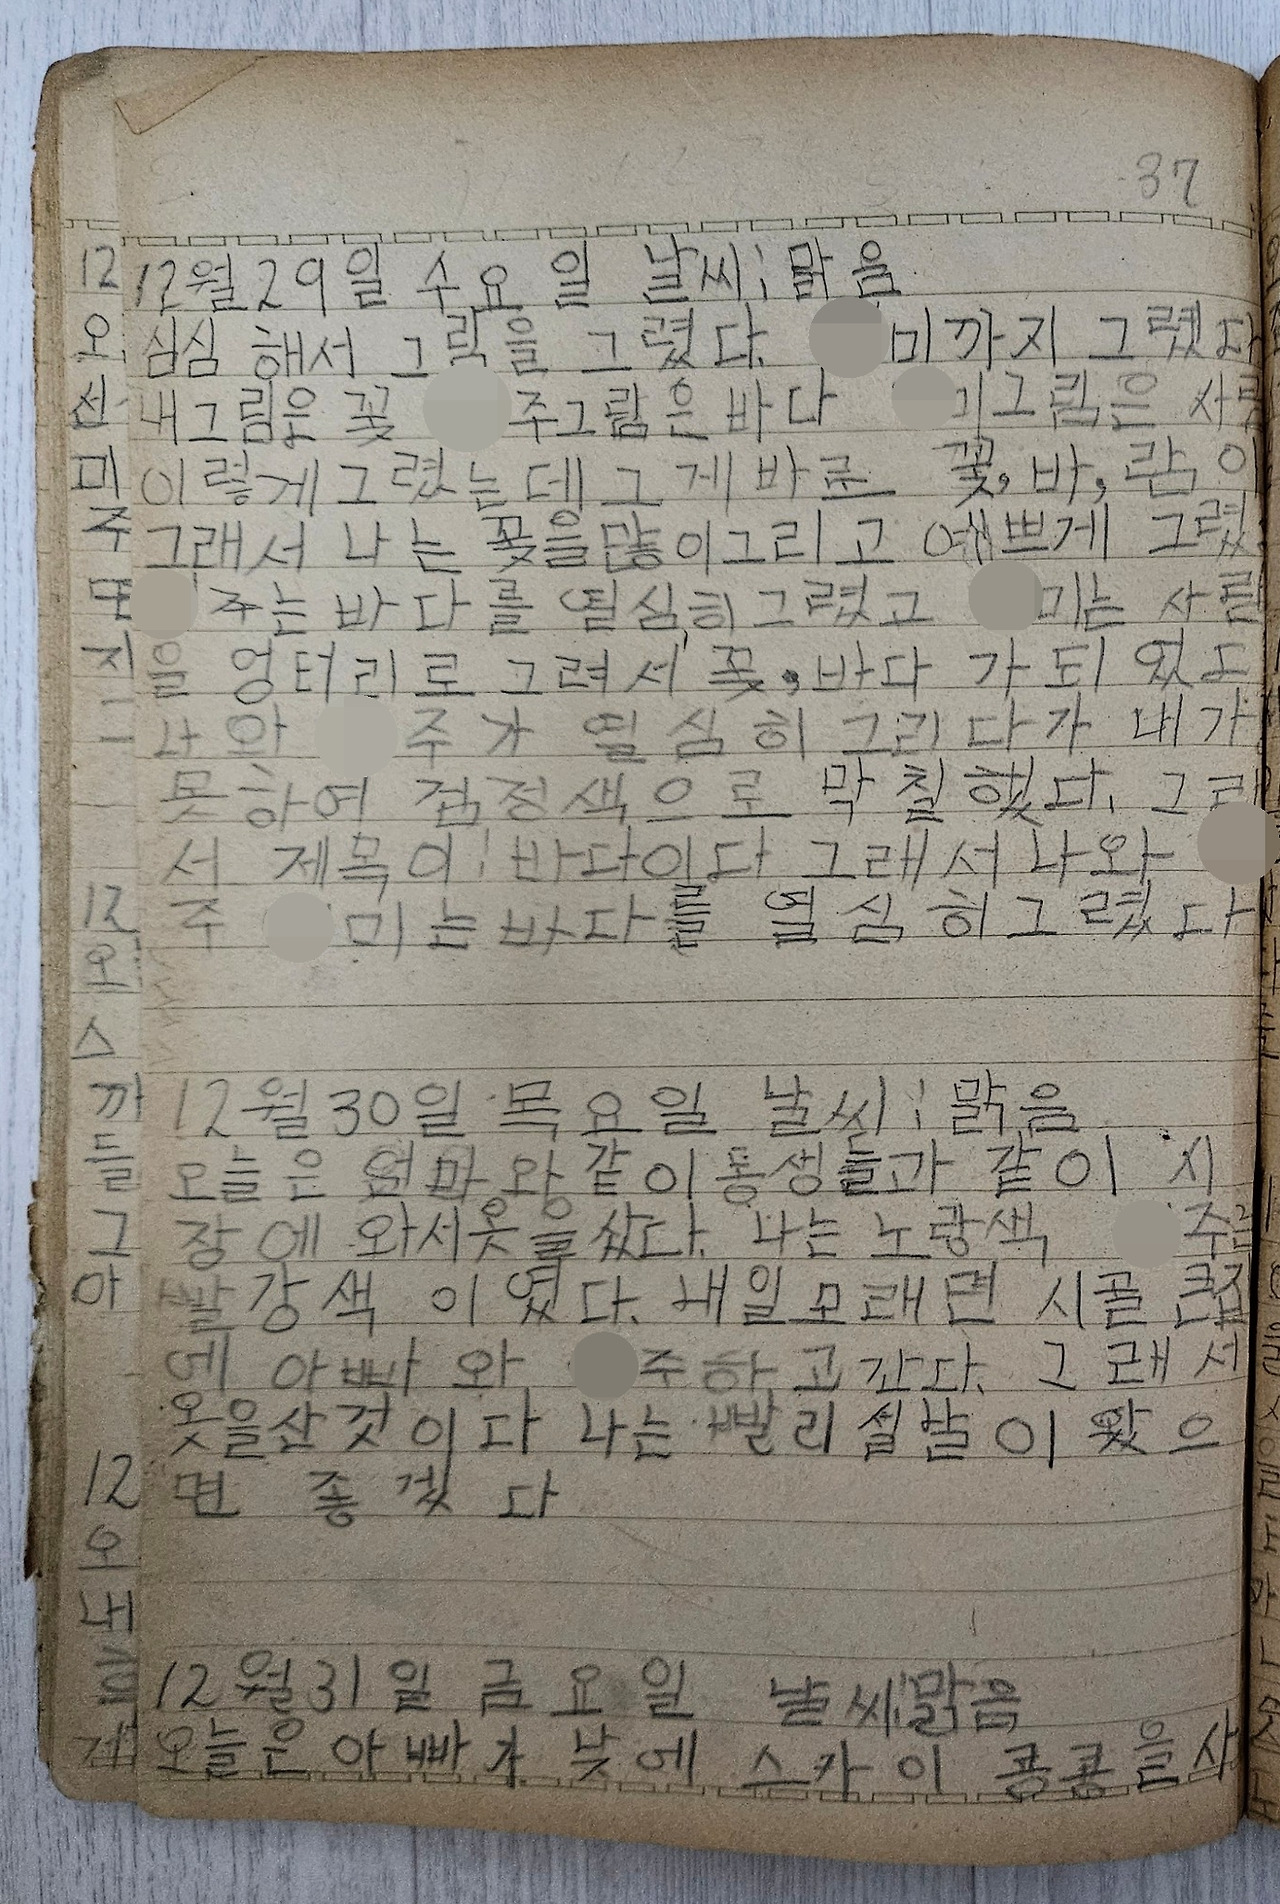 37
12월 29일 수요일 날씨: 맑음
심심 해서 그림을 그렸다. 미까지 그렸다
내그림은 꽃 주그림은 바다 미그림은 사람
이렇게 그렸는데 그게 바로 꽃, 바, 람 이
그래서 나는 꽃을 많이 그리고 예쁘게 그렸
주는 바다를 열심히 그렸고 미는 사람
을 엉터리로 그려서 꽃, 바다 가 되 었다
나 와 주가 열심히 그리다가 내가
못하여 검정색으로 막 칠했다. 그래
서 제목이: 바다이다 그래서 나와
주 미는 바다를 열심히 그렸다
12월 30일 목요일 날씨: 맑음
오늘은 엄마와 같이 동생들과 같이 시
장에 와서 옷을 샀다. 나는 노랑색 주는
빨강색 이였다. 내일모래면 시골 큰집
에 아빠와 주하고 간다. 그래서
옷을 산것이다 나는 빨리 설날이 왔으
면 좋겠다
12월 31일 금요일 날씨: 맑음
오늘은 아빠가 낮에 스카이 콩콩을 사
12
오
선
미
주
또
지
12
오
스
까
들
그
아
12
오
내